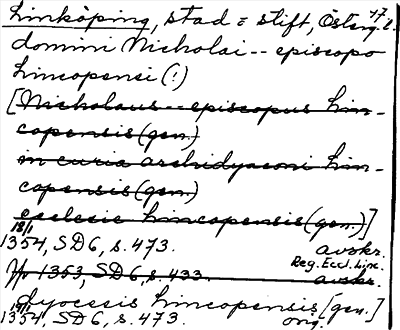 Linköping, stad = stift, Österg. l. 17
domini Nicholai -- episcopo
lincopensi (!)
[Nicholaus -- episcopus lin-
copensis (gen.)
in curia archidyaconi lin-
copensis (gen.)
ecclesie lincopensis (gen.)]
18/1
1354, SD6, s. 473. avskr.
Reg. Eccl. Linc.
1353, SD6, s. 433. avskr.
dyocesis lincopensis [gen.]
1354, SD6, s. 473. orig.